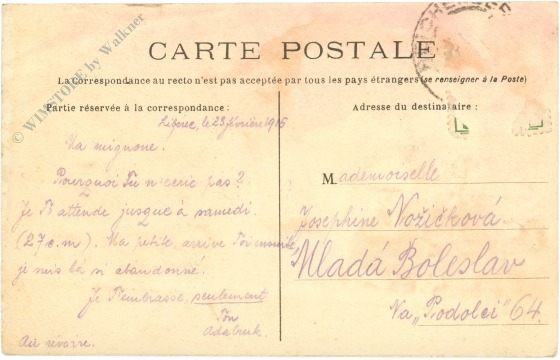 CARTE POSTALE
La Correspondance au recto n'est pas acceptée par tous les pays étrangers (se renseigner à la Poste)
Partie réservée à la correspondance:
Adresse du destinataire:
Liberec, le 23 février 1915
Ma mignone.
Pourquoi Tu n'ecric pas?
Je T'attende jusque à samedi.
(27 c.m). Ma petite, arrive Toi ensuite,
je suis là si abandonné.
Je T'embrasse, seulement
Ton
Au revoire.
Mademoiselle
Josephine Nožičková.
Mladá Boleslav
Na „Podolci" 64.
© WIMSTORE by Walkner